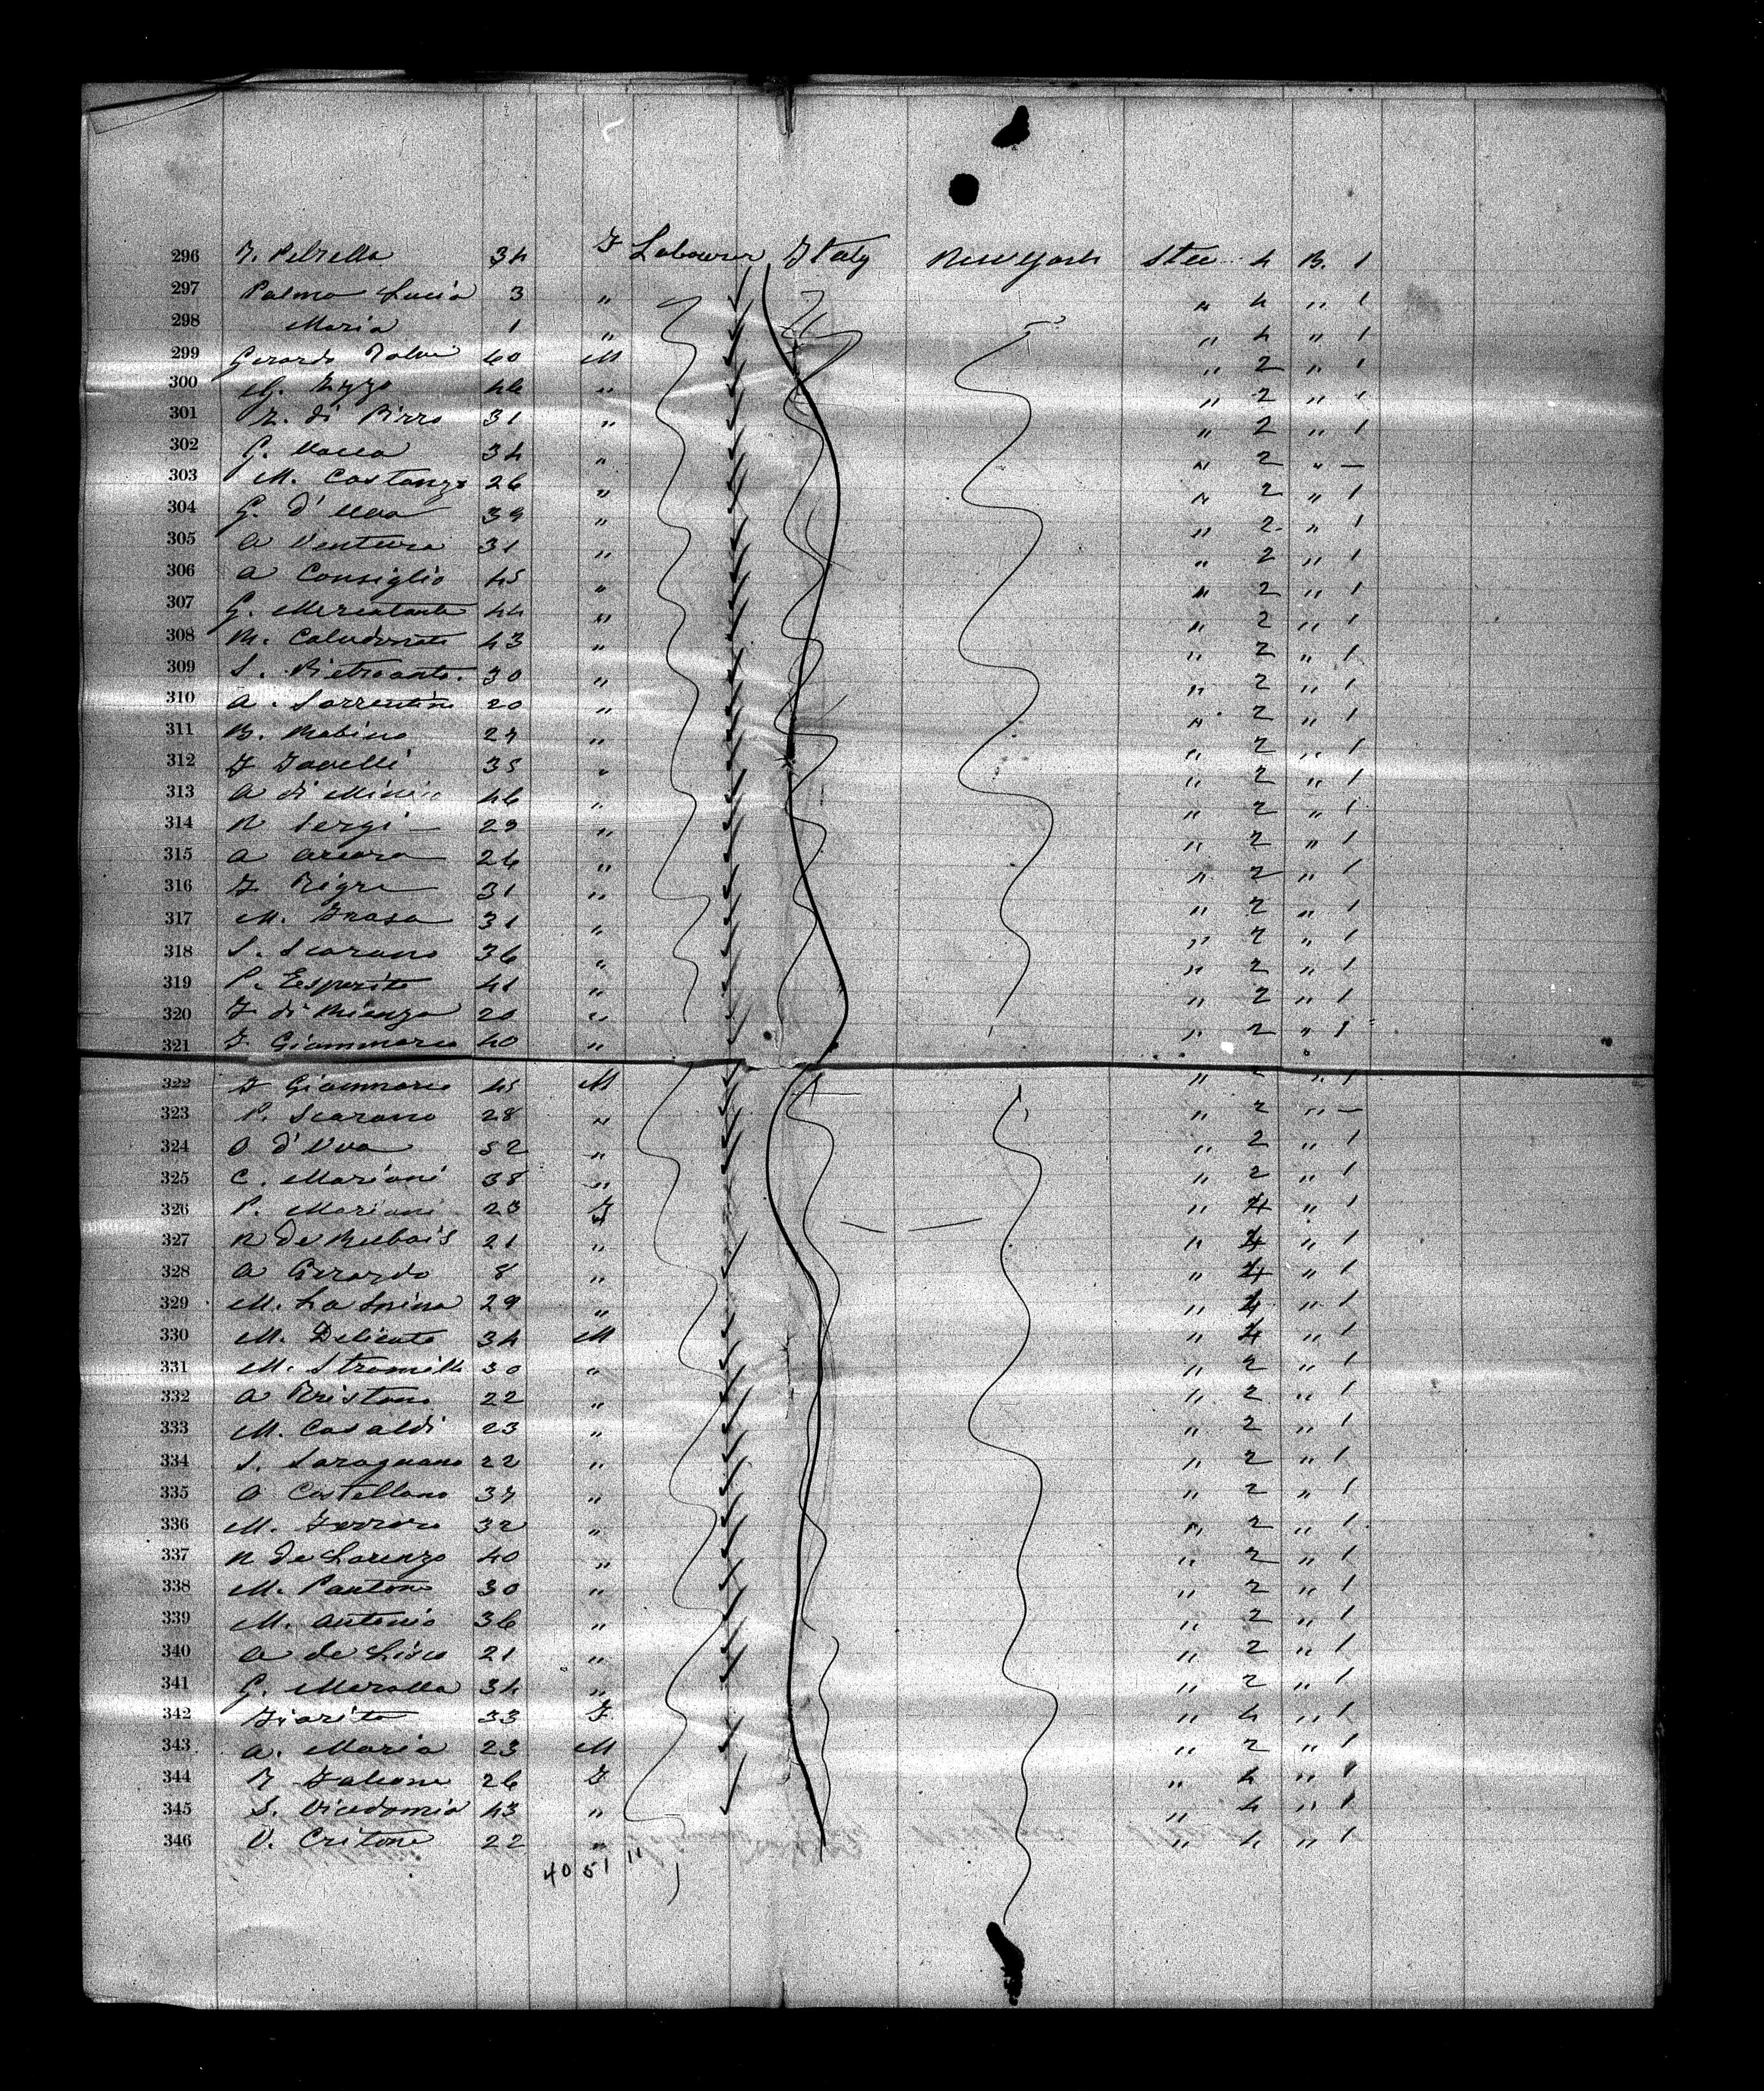 296 F. Petrella 34 F Labourer Italy New York Stee 4 B. 1
297 Palma Lucia 3 " " 4 " 1
298 Maria 1 " " 4 " 1
299 Gerardo 40 M " 2 " 1
300 G. Rizzo 46 " " 2 " 1
301 di Pirro 31 " " 2 " 1
302 G. Vacca 34 " " 2 " —
303 M. Costanzo 26 " " 2 " 1
304 G. d'Uva 39 " " 2 " 1
305 A Ventura 31 " " 2 " 1
306 A Consiglio 45 " " 2 " 1
307 G. Mercatante 44 " " 2 " 1
308 M. 43 " " 2 " 1
309 S. Pietroanto. 30 " " 2 " 1
310 A. Sorrentino 20 " " 2 " 1
311 B. Mabino 27 " " 2 " 1
312 F 35 " " 2 " 1
313 A di 46 " " 2 " 1
314 N Sergi — 29 " " 2 " 1
315 A Arcara 26 " " 2 " 1
316 F Pigre 31 " " 2 " 1
317 M. Frasa 31 " " 2 " 1
318 S. Scarano 36 " " 2 " 1
319 P. Esposito 41 " " 2 " 1
320 F di Rienzo 20 " " 2 " 1
321 F Giammaria 40 " " 2 " 1
322 F Giammario 45 M " 2 " 1
323 P. Scarano 28 " " 2 " —
324 O d'Uva 52 " " 2 " 1
325 C. Mariani 38 " " 2 " 1
326 P. Mariani 23 F " 4 " 1
327 R de Rubais 21 " " 4 " 1
328 A Gerardo 8 " " 4 " 1
329 M. La Spina 29 " " 4 " 1
330 M. Delicato 34 M " 4 " 1
331 M. Stramillo 30 " " 2 " 1
332 A Pristano 22 " " 2 " 1
333 M. Casaldi 23 " " 2 " 1
334 S. Saraguano 22 " " 2 " 1
335 A Castellano 37 " " 2 " 1
336 M. Ferraro 32 " " 2 " 1
337 N de Lorenzo 40 " " 2 " 1
338 M. Pantone 30 " " 2 " 1
339 M. Antonio 36 " " 2 " 1
340 A de Lisco 21 " " 2 " 1
341 G. Marolla 34 " " 2 " 1
342 Fiorita 33 F " 4 " 1
343 A. Maria 23 M " 2 " 1
344 F Falcone 26 F " 4 " 1
345 S. Vicedomia 43 " " 4 " 1
346 V. Critone 22 " " 4 " 1
40 51 11